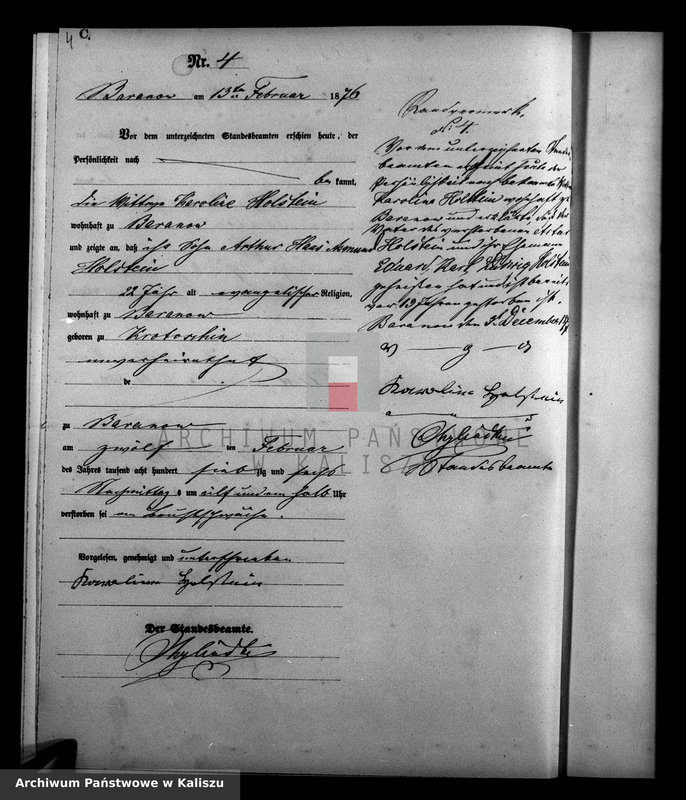 4 C.
Nr. 4
Baranow am 13ten Februar 1876
Vor dem unterzeichneten Standesbeamten erschien heute, der
Persönlichkeit nach
be kannt,
die Wittwe Karoline Holstein
wohnhaft zu Baranow
und zeigte an, daß ihr Sohn Arthur
Holstein
22 Jahr alt evangelischer Religion,
wohnhaft zu Baranow
geboren zu Krotoschin
unverheirathet
de
zu Baranow
am zwölf ten Februar
des Jahres tausend acht hundert sieb zig und sechs
Nachmittag s um elf und ein halb Uhr
verstorben sei an
Vorgelesen, genehmigt und unterschrieben
Karoline Holstein
Der Standesbeamte.
Randvermerk.
No 4.
Vor dem unterzeichneten Standes
beamten erscheint heute der
Persönlichkeit nach bekannt
Karolina Holstein wohnhaft zu
Baranow und erklärte, daß der
Vater des verstorbenen Artur
Holstein und ihr Ehemann
Eduard Karl Ludwig Holstein
geheißen hat und ist bereits
vor 13 Jahren gestorben ist.
Baranow den 3t December
v g u
Karolina Holstein
Standesbeamte
ARCHIWUM PAŃSTWOWE
W KALISZU
Archiwum Państwowe w Kaliszu